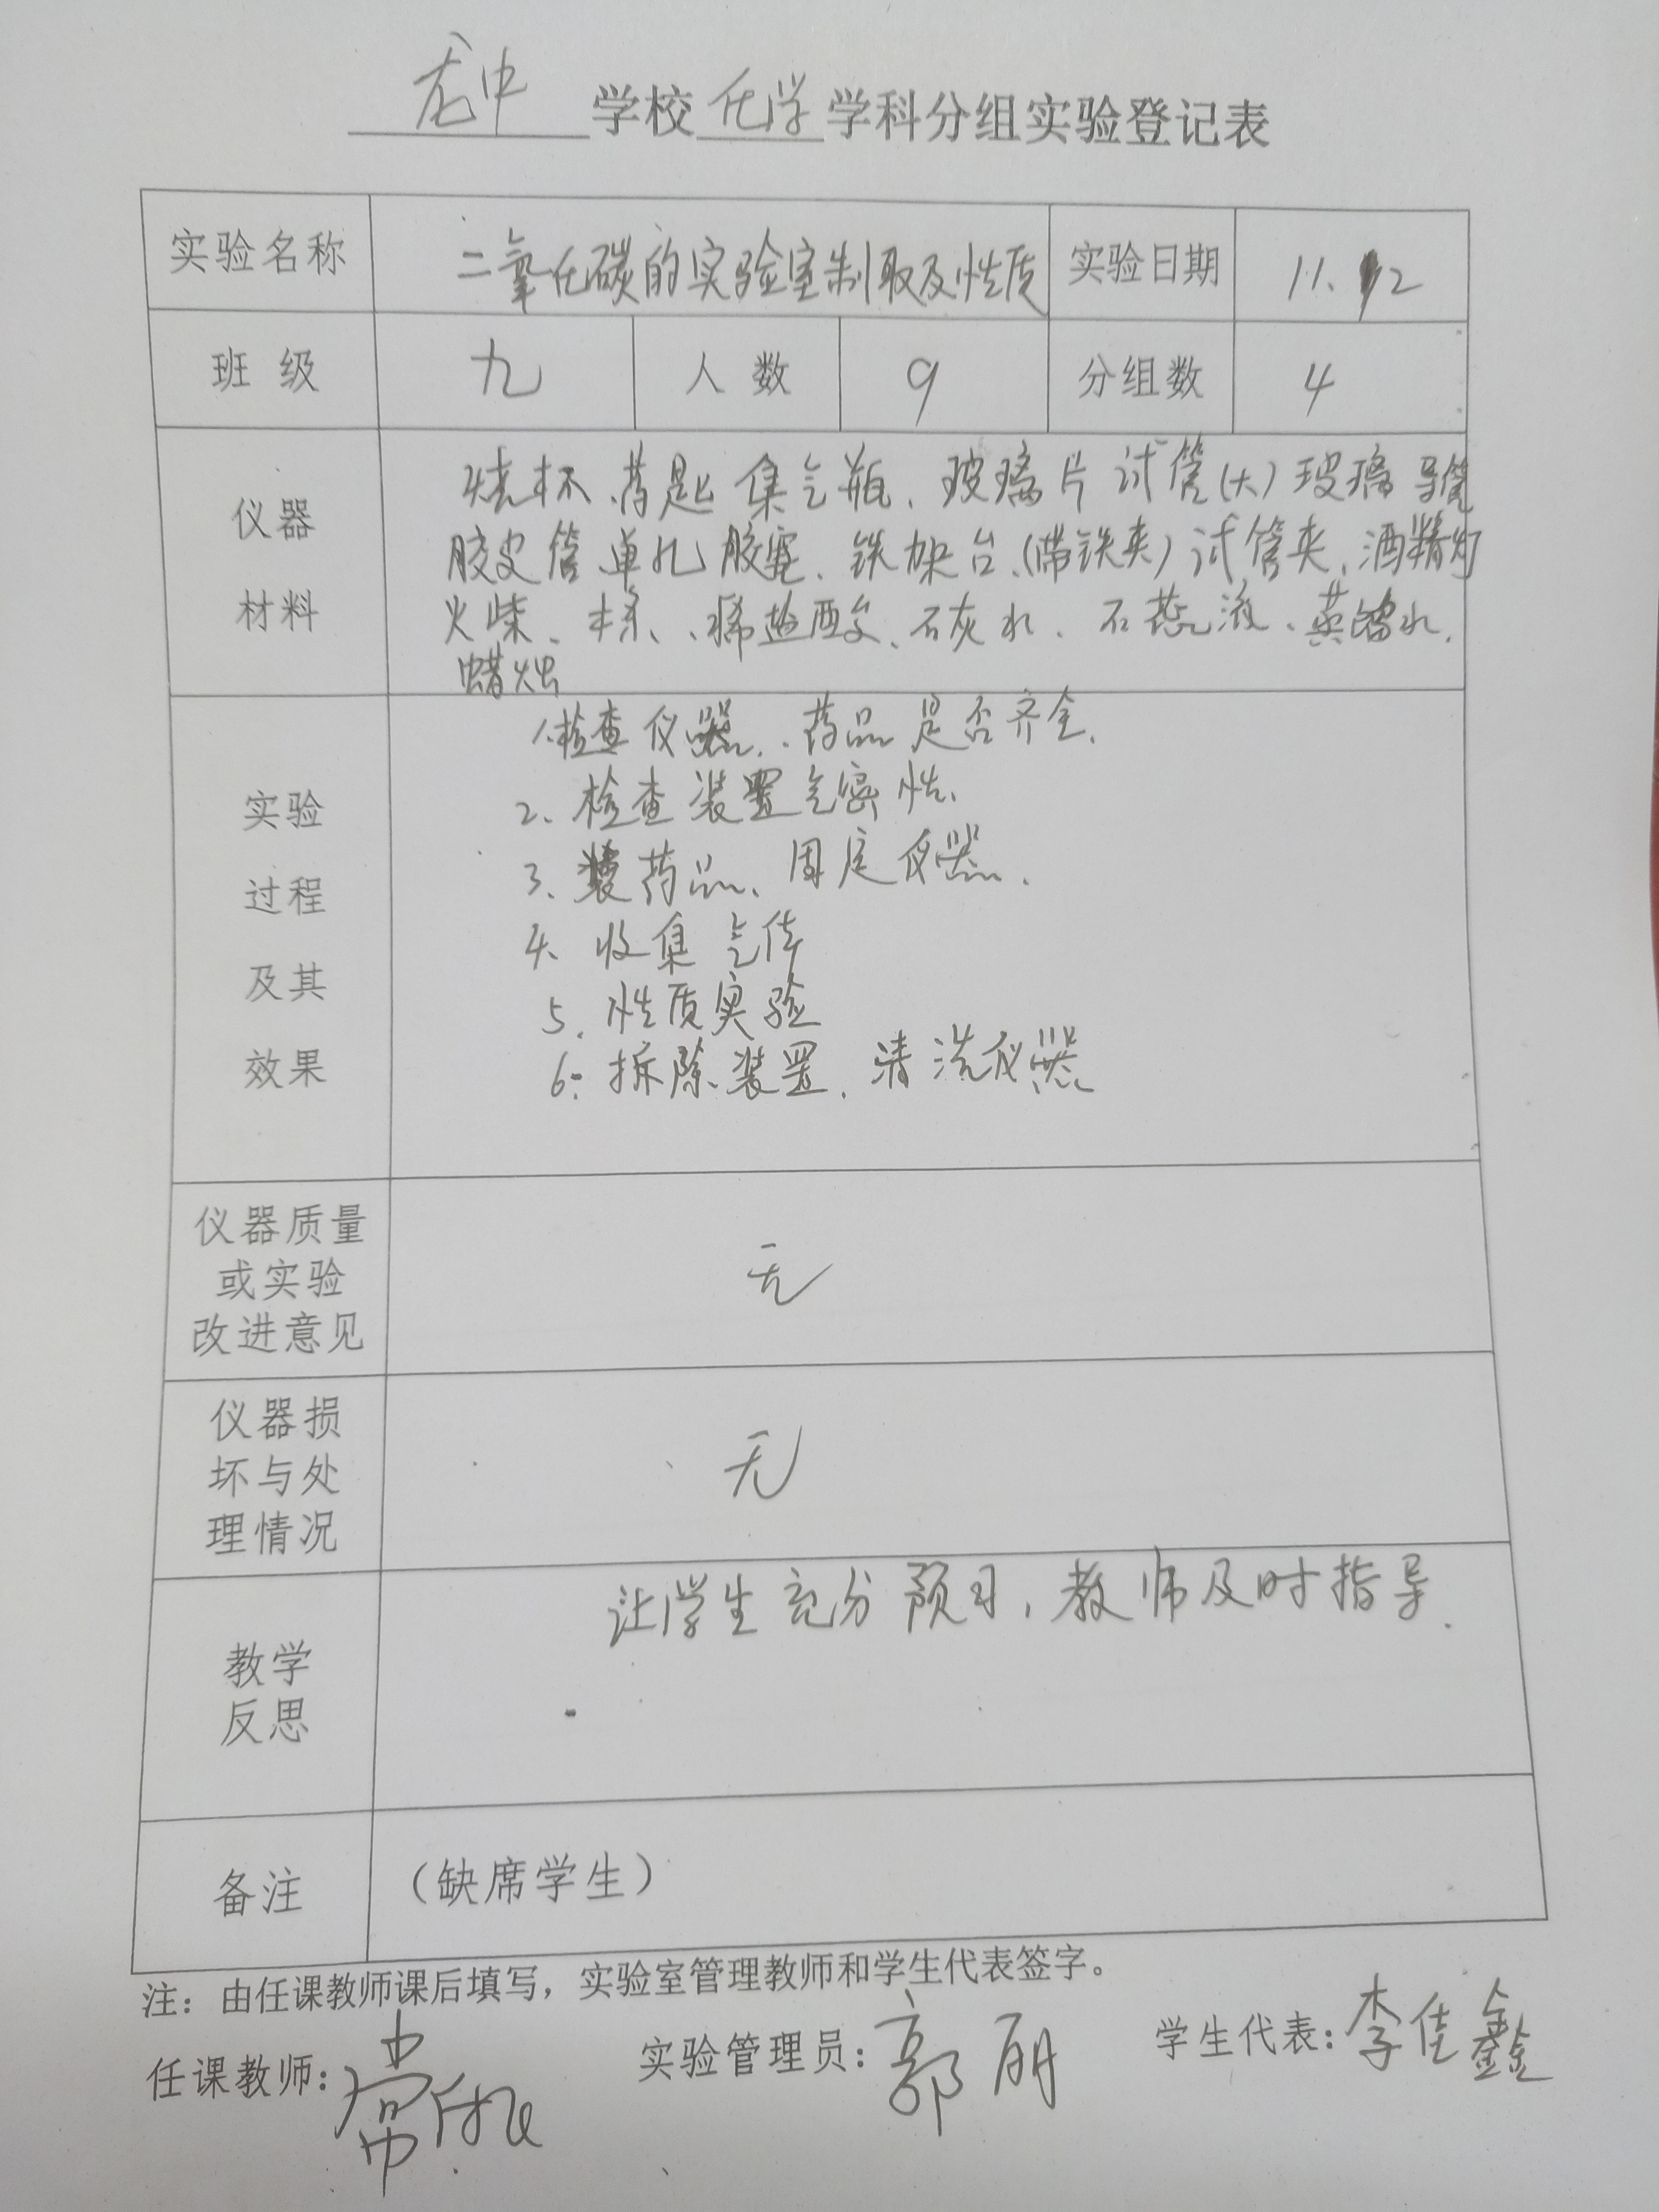 龙中 学校 化学 学科分组实验登记表
实验名称 二氧化碳的实验室制取及性质 实验日期 11.12
班 级 九 人 数 9 分组数 4
仪器
材料
烧杯、药匙 集气瓶、玻璃片 试管(大) 玻璃导管
胶皮管、单孔胶塞、铁架台、(带铁夹) 试管夹、酒精灯
火柴、木条、、稀盐酸、石灰水、石蕊液、蒸馏水、
蜡烛
实验
过程
及其
效果
1、检查仪器、、药品是否齐全、
2、检查装置气密性、
3、装药品、固定仪器、
4、收集气体
5、性质实验
6、拆除装置、清洗仪器
仪器质量
或实验
改进意见
无
仪器损
坏与处
理情况
无
教学
反思
让学生充分预习,教师及时指导.
备注 (缺席学生)
注：由任课教师课后填写，实验室管理教师和学生代表签字。
任课教师: 常 实验管理员: 郭丽 学生代表: 李佳鑫